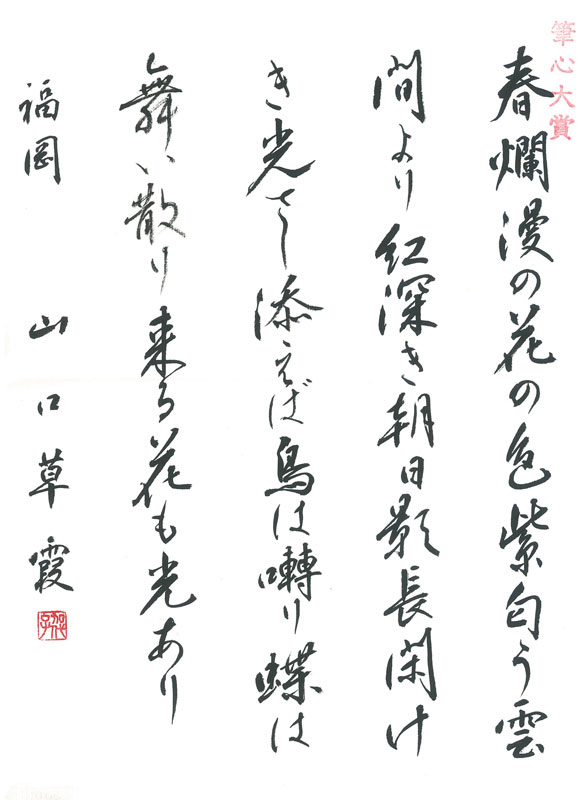 筆心大賞
春爛漫の花の色紫匂う雲
間より紅深き朝日影長閑け
き光さし添えば鳥は囀り蝶は
舞い散り来る花も光あり
福岡 山口草霞